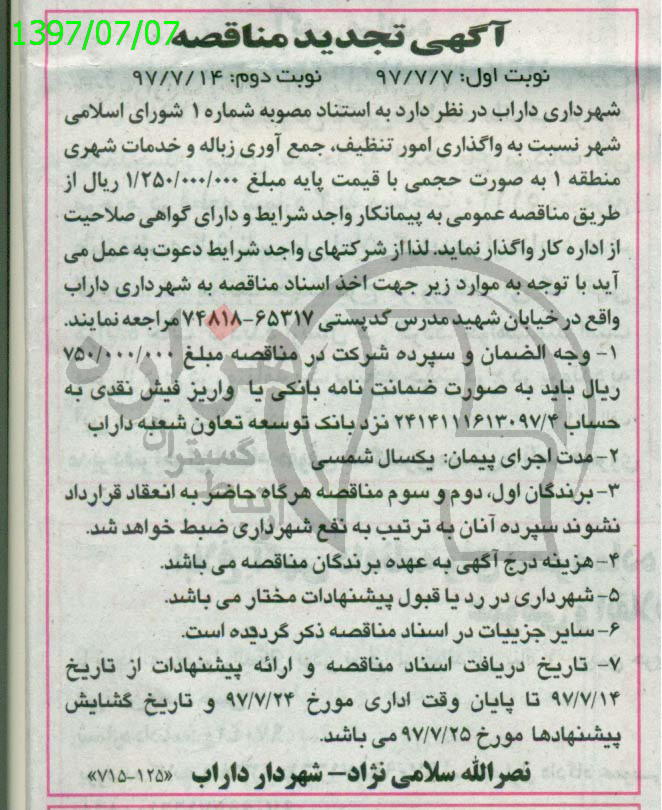 1397/07/07
آگهی تجدید مناقصه
نوبت اول: ۹۷/۷/۷ نوبت دوم: ۹۷/۷/۱۴
شهرداری داراب در نظر دارد به استناد مصوبه شماره ۱ شورای اسلامی
شهر نسبت به واگذاری امور تنظیف، جمع آوری زباله و خدمات شهری
منطقه ۱ به صورت حجمی با قیمت پایه مبلغ ۱/۲۵۰/۰۰۰/۰۰۰ ریال از
طریق مناقصه عمومی به پیمانکار واجد شرایط و دارای گواهی صلاحیت
از اداره کار واگذار نماید. لذا از شرکتهای واجد شرایط دعوت به عمل می
آید با توجه به موارد زیر جهت اخذ اسناد مناقصه به شهرداری داراب
واقع در خیابان شهید مدرس کدپستی ۶۵۳۱۷-۷۴۸۱۸ مراجعه نمایند.
۱- وجه الضمان و سپرده شرکت در مناقصه مبلغ ۷۵۰/۰۰۰/۰۰۰
ریال باید به صورت ضمانت نامه بانکی یا واریز فیش نقدی به
حساب ۲۴۱۴۱۱۱۶۱۳۰۹۷/۴ نزد بانک توسعه تعاون شعبه داراب
۲-مدت اجرای پیمان: یکسال شمسی
۳-برندگان اول، دوم و سوم مناقصه هرگاه حاضر به انعقاد قرارداد
نشوند سپرده آنان به ترتیب به نفع شهرداری ضبط خواهد شد.
۴- هزینه درج آگهی به عهده برندگان مناقصه می باشد.
۵-شهرداری در رد یا قبول پیشنهادات مختار می باشد.
۶-سایر جزییات در اسناد مناقصه ذکر گردیده است.
۷- تاریخ دریافت اسناد مناقصه و ارائه پیشنهادات از تاریخ
۹۷/۷/۱۴ تا پایان وقت اداری مورخ ۹۷/۷/۲۴ و تاریخ گشایش
پیشنهادها مورخ ۹۷/۷/۲۵ می باشد.
نصرالله سلامی نژاد- شهردار داراب «۱۲۵-۷۱۵»